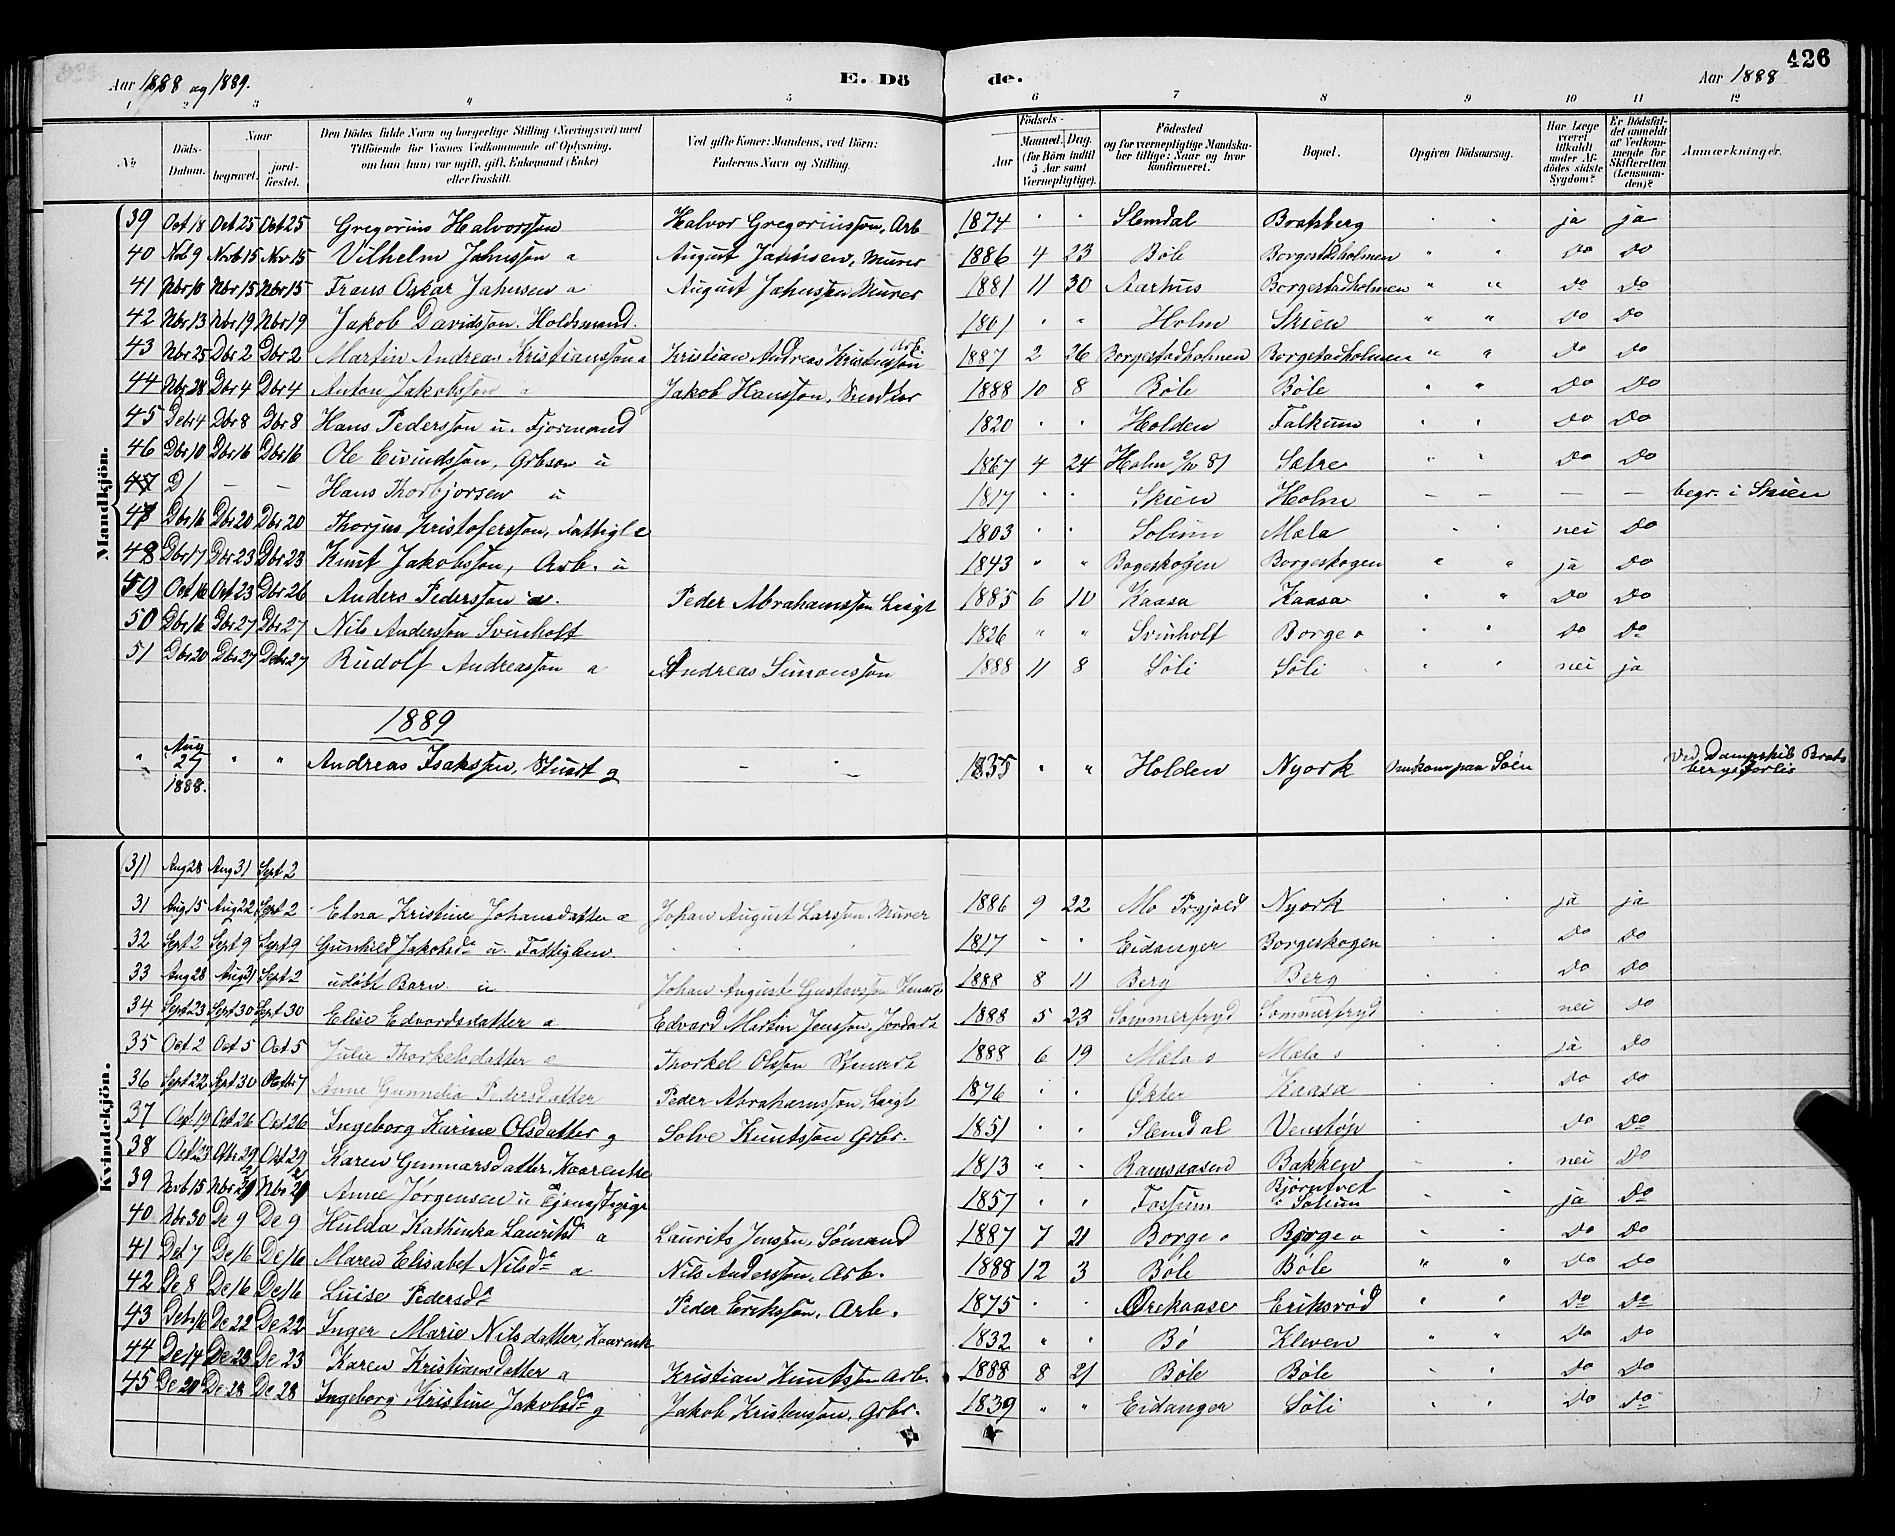 426
Aar 1888 og 1889. E. Dö de. Aar 1888
1 2 3 4 5 6 7 8 9 10 11 12
No. Döds-Datum. Naar begravet. jord-fæstet. Den Dödes fulde Navn og borgerlige Stilling (Næringsvei) med Tilföiende for Voxnes Vedkommende af Oplysning, om han (hun) var ugift, gift, Enkemand (Enke) eller fraskilt. Ved gifte Koner: Mandens, ved Börn: Faderens Navn og Stilling. Födsels- Aar Maaned. Dag. (for Börn indtil 5 Aar samt Værnepligtige). Födested og for værnepligtige Mandska-ber tillige: Naar og hvor konfirmeret. Bopæl. Opgiven Dödsaarsag. Har Læge været tilkaldt under Af-dödes sidste Sygdom? Er Dödsfal-det anmeldt af Vedkom-mende for Skifteretten (Lensman-den)? Anmærkninger.
Mandkjön.
39 Oct 18 Oct 25 Oct 25 Gregorius Halvorsson Halvor Gregoriusson, Arb 1874 " " Slemdal Bratsberg " " ja ja
40 Nob 9 Novb 15 Nov 15 Vilhelm Jahnsson a August Jahnsen, Murer 1886 4 23 Bøle Borgestadholmen " " Do Do
41 Nbr 10 Nbr 15 Nbr 15 Frans Oskar Jahnsen a August Jahnsen Murer 1881 11 30 Aarhus Borgestadholmen " " Do Do
42 Nbr 13 Nbr 19 Nbr 19 Jakob Davidsson. Holdsmand. 1801 " " Holm Skien " " Do Do
43 Nbr 25 Dbr 2 Dbr 2 Martin Andreas Kristiansson a Kristian Andreas Kristensson Arb. 1887 2 26 Borgestadholmen Borgestadholmen " " Do Do
44 Nbr 28 Dbr 4 Dbr 4 Anton Jakobsson a Jakob Hansson, 1888 10 8 Bøle Bøle " " Do Do
45 Debr 4 Dbr 8 Dbr 8 Hans Pedersson u. 1820 " " Holden Falkum " " Do Do
46 Dbr 10 Dbr 16 Dbr 16 Ole Eivindsson, Grbson u 1867 4 24 Holm 81 Sætre " " Do Do
47 D 1 — — Hans Thorbjorsen u 1817 " " Skien Holm — — — — begr. i Skien
47 Dbr 16 Dbr 20 Dbr 20 Thorjus Kristofersson, Fattigl e 1803 " " Solum Mæla " " nei Do
48 Dbr 17 Dbr 23 Dbr 23 Knut Jakobsson, Arb. u 1843 " " Bogeskogen Borgeskogen " " ja Do
49 Oct 16 Oct 23 Dbr 26 Anders Pedersson a. Peder Abrahamsson 1885 6 10 Kaasa Kaasa " " Do Do
50 Dbr 16 Dbr 27 Dbr 27 Nils Andersson Svinholt 1826 " " Svinholt Borge ø " " Do Do
51 Dbr 20 Dbr 27 Debr 27 Rudolf Andreasson a Andreas Simonsson 1888 11 8 Søli Søli " " nei ja
1889
" Aug 25 1888. " " Andreas Isakssen, g — — 1835 " " Holden Nyork Omkom paa Søen Ved Dampskib Brats bergs Forlis
Kvindekjön.
(31) Aug 28 Aug 31 Sept 2
31 Aug 15 Aug 22 Sept 2 Elna Kristine Johansdatter a Johan August Larsson, Murer 1886 9 22 Mo Nyork " " ja ja
32 Sept 2 Sept 9 Sept 9 Gunhild Jakobsdr u. " " 1817 " " Eidanger Borgeskogen " " Do Do
33 Aug 28 Aug 31 Sept 2 udøbt Barn u Johan August Gustavsson 1888 8 11 Berg Berg " " Do Do
34 Sept 23 Sept 30 Sept 30 Elise Edvardsdatter a Edvard Martin Jensson, 1888 5 23 Sommerfryd Sommerfryd " " nei Do
35 Oct 2 Oct 5 Oct 5 Julie Thorkelsdatter a Thorkel Olsson 1888 6 19 Mæla Mæla " " ja Do
36 Sept 22 Sept 30 Octbr 7 Anne Pedersdatter Peder Abrahamsson, 1876 " " Økter Kaasa " " Do Do
37 Oct 19 Oct 26 Oct 26 Ingeborg Karine Olsdatter g Solve Knutsson Grbr. 1851 " " Slemdal Venstøp " Do Do
38 Oct 23 Otbr 29 Oct 29 Karen Gunnarsdatter, 1813 " " Ramsaasen Bakken " " nei Do
39 Nvb 15 Nbr 21 Nbr 21 Anne Jørgensen u Tjenestepige 1857 " " Fossum Bjørntvet i Solum " " ja Do
40 Nbr 30 De 9 De 9 Hulda Kathinka Lauritsdr a Laurits Jenssen, Sømand 1887 7 21 Borge ø Borge ø " Do Do
41 Det 7 De 16 De 16 Maren Elisabet Nilsdr a Nils Andersson, Arb. 1888 12 3 Bøle Bøle " " Do Do
42 De 8 De 16 De 16 Luise Pedersdr Peder Eriksson, Arb. 1875 " " Ørekaase Eriksrød " " Do Do
43 Deb 16 De 22 De 22 Inger Marie Nilsdatter, 1832 " " Bø Kleven " " Do Do
44 De 14 De 23 De 23 Karen Kristiansdatter a Kristian Knutsson Arb. 1888 8 21 Bøle Bøle " " Do Do
45 De 20 De 28 De 28 Ingeborg Kristine Jakobsdr g Jakob Kristensson, Grbr. 1839 " " Eidanger Søli " " Do Do